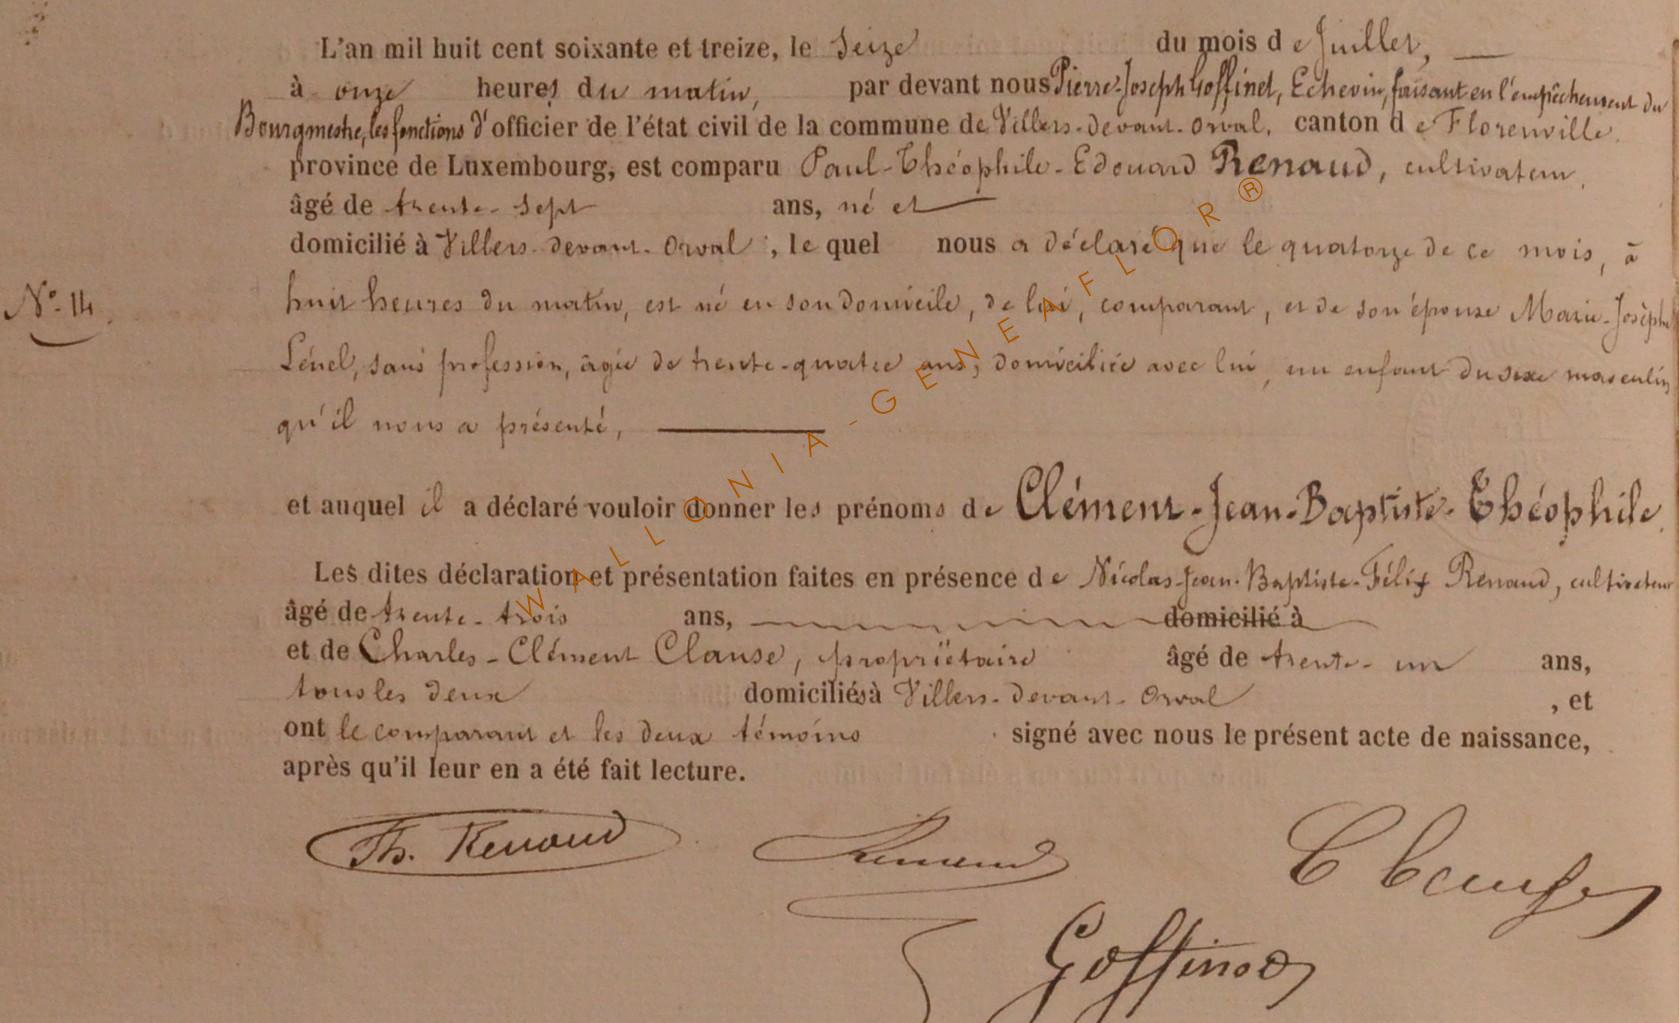 L'an mil huit cent soixante et treize, le Seize du mois de Juillet,
à onze heures du matin, par devant nous Pierre-Joseph Goffinet, Echevin, faisant en l'empêchement du
Bourgmestre, les fonctions d'officier de l'état civil de la commune de Villers-devant-Orval, canton de Florenville,
province de Luxembourg, est comparu Paul-Théophile-Edouard Renaud, cultivateur,
âgé de trente-sept ans, né et
domicilié à Villers-devant-Orval, lequel nous a déclaré que le quatorze de ce mois, à
N° 14.
huit heures du matin, est né en son domicile, de lui, comparant, et de son épouse Marie-Josèphe
sans profession, âgée de trente-quatre ans, domiciliée avec lui, un enfant du sexe masculin
qu'il nous a présenté,
et auquel il a déclaré vouloir donner les prénoms de Clément-Jean-Baptiste-Théophile.
Les dites déclaration et présentation faites en présence de Nicolas-Jean-Baptiste-Félix Renaud, cultivateur
âgé de trente-trois ans, domicilié à
et de Charles-Clément Clause, propriétaire âgé de trente-un ans,
tous les deux domiciliés à Villers-devant-Orval, et
ont le comparant et les deux témoins signé avec nous le présent acte de naissance,
après qu'il leur en a été fait lecture.
Th. Renaud Renaud C Clause
Goffinet
WALLONIA-GENEAFLOR®